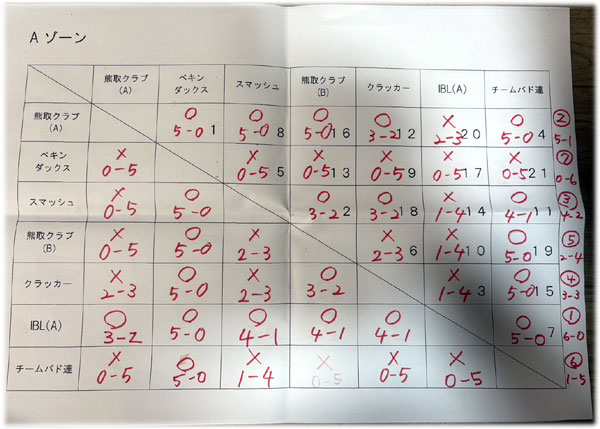 Aゾーン
熊取クラブ(A) ペキンダックス スマッシュ 熊取クラブ(B) クラッカー IBL(A) チームバド達
熊取クラブ(A) ○ ○ ○ ○ × ○ ②
5-0 1 5-0 8 5-0 16 3-2 12 2-3 20 5-0 4 5-1
ペキンダックス × × × × × × ⑦
0-5 0-5 5 0-5 13 0-5 9 0-5 17 0-5 21 0-6
スマッシュ × ○ ○ ○ × ○ ③
0-5 5-0 3-2 2 3-2 18 1-4 14 4-1 11 4-2
熊取クラブ(B) × ○ × × × ○ ⑤
0-5 5-0 2-3 2-3 6 1-4 10 5-0 19 2-4
クラッカー × ○ × ○ × ○ ④
2-3 5-0 2-3 3-2 1-4 3 5-0 15 3-3
IBL(A) ○ ○ ○ ○ ○ ○ ①
3-2 5-0 4-1 4-1 4-1 5-0 7 6-0
チームバド達 × ○ × × × × ⑥
0-5 5-0 1-4 0-5 0-5 0-5 1-5